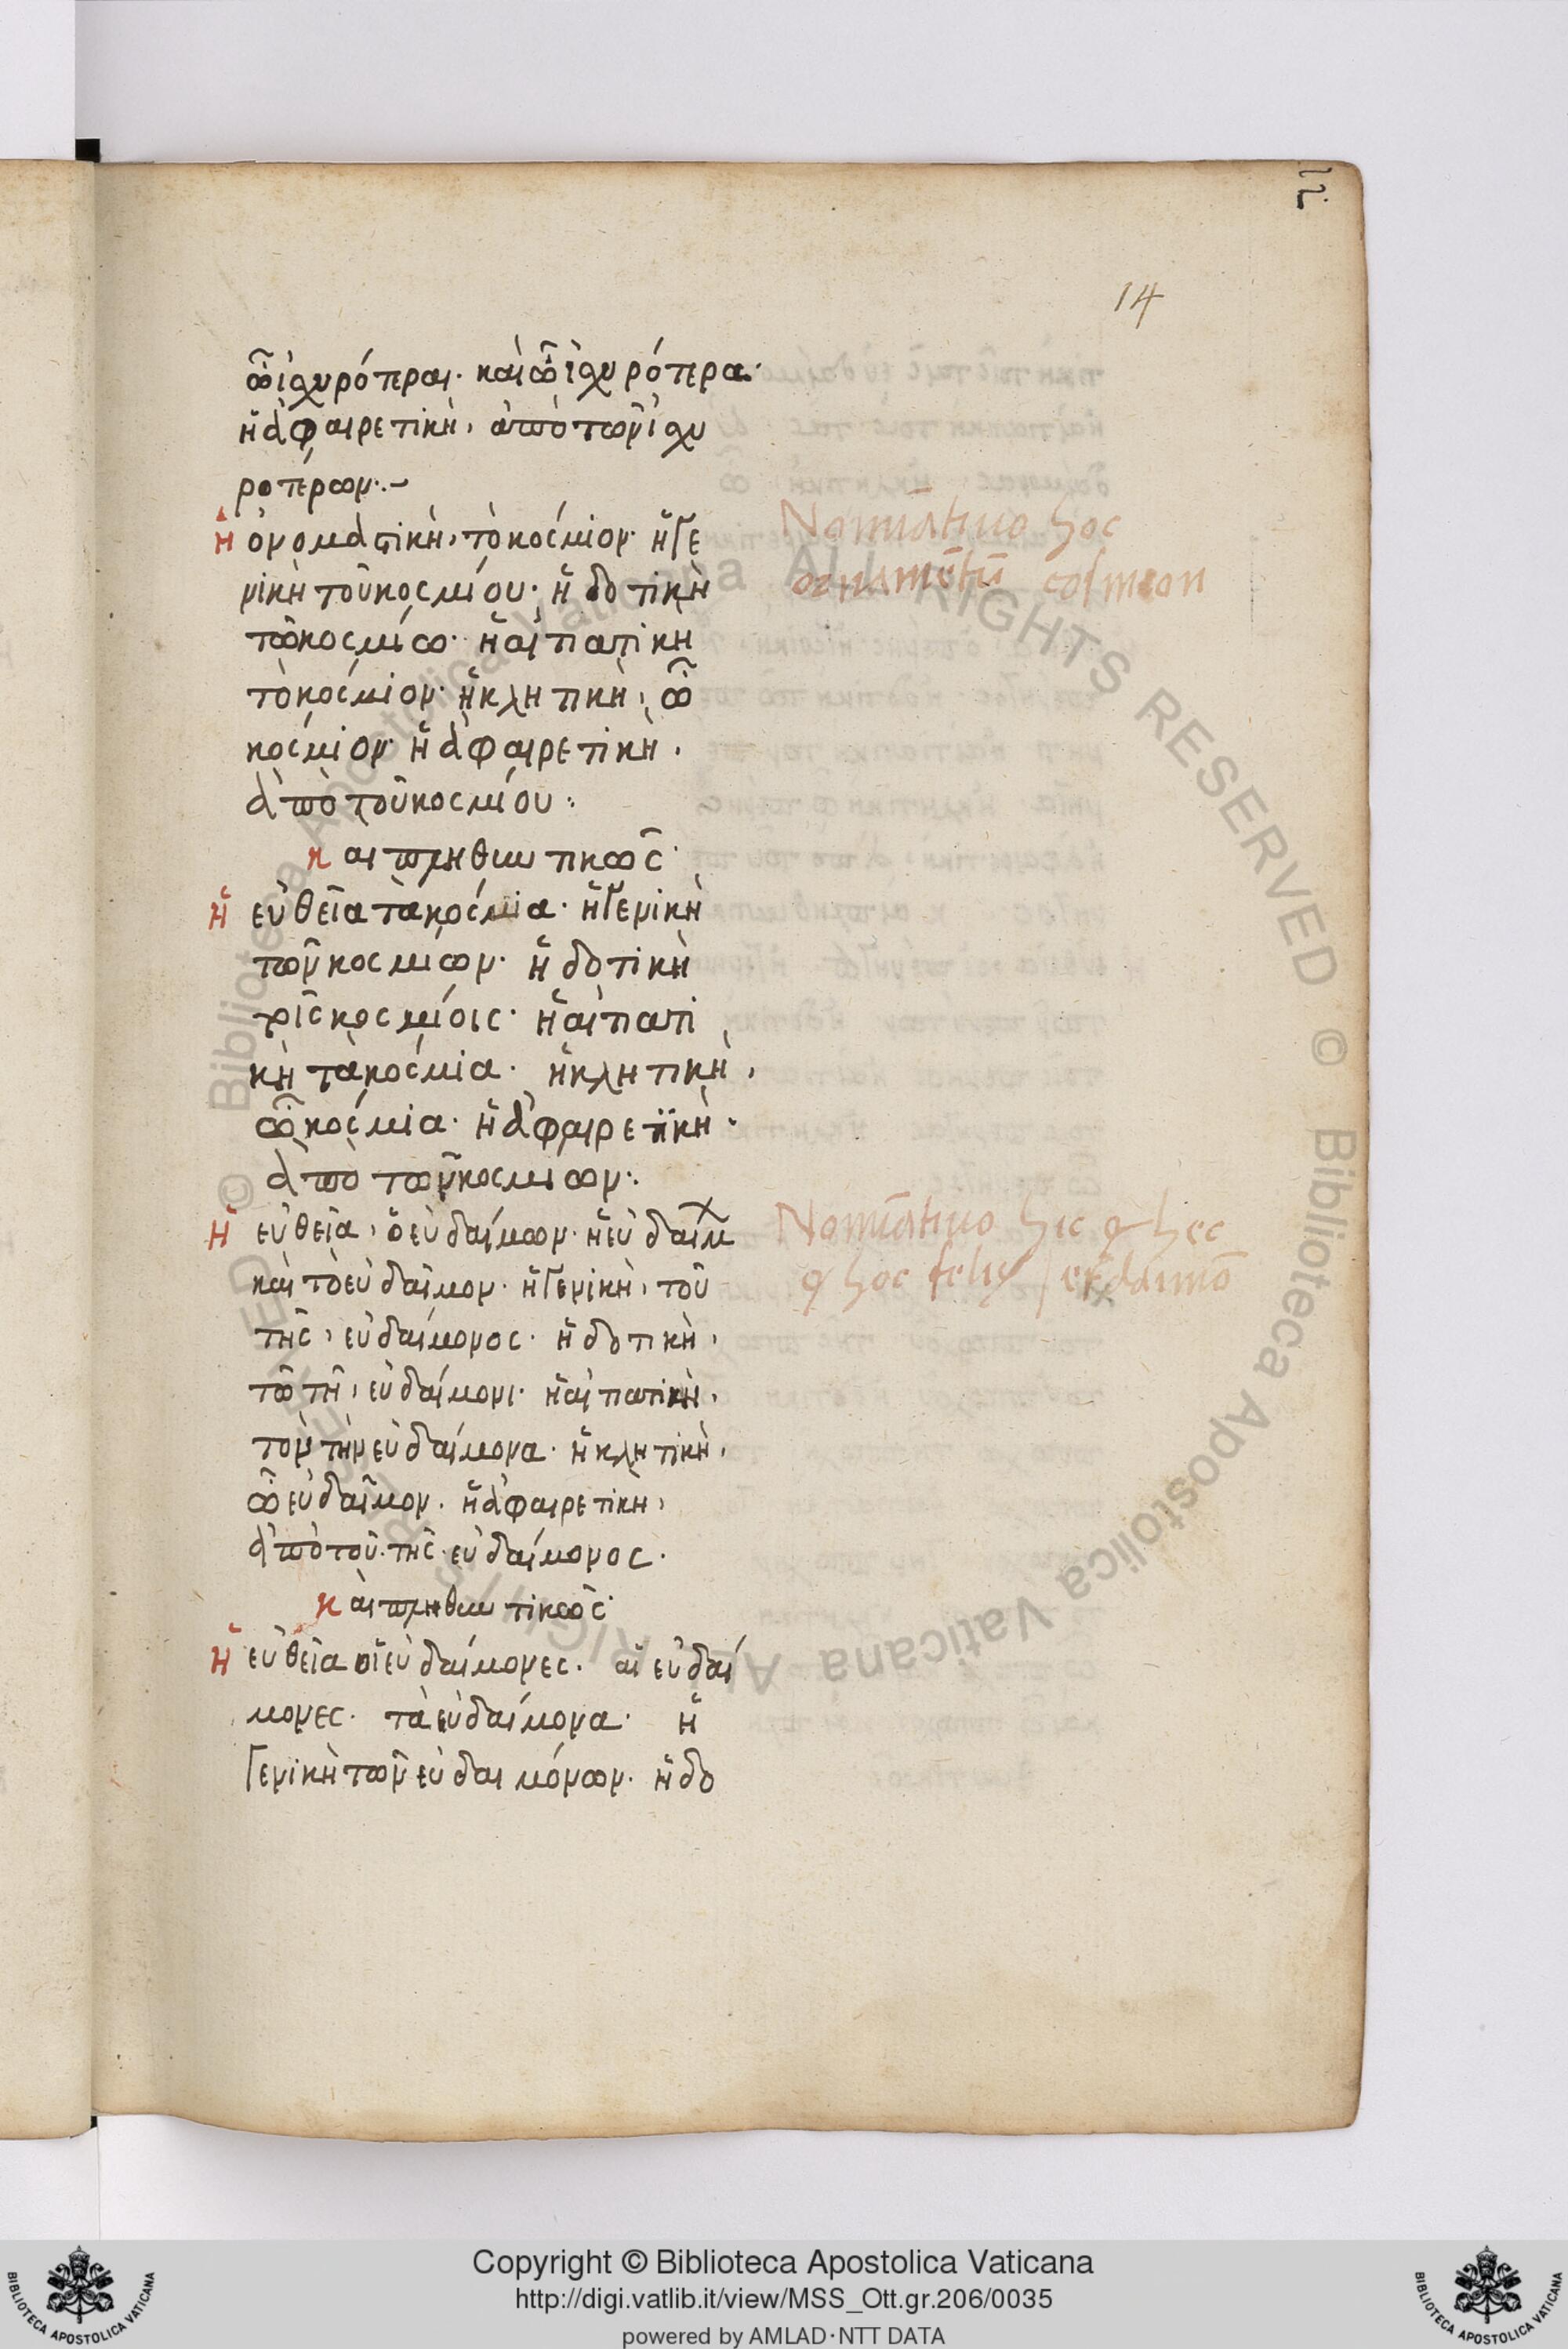 14
ὦ ἰσχυρότεραι· καὶ ὦ ἰσχυρότερα·
ἡ ἀφαιρετικὴ, ἀπὸ τῶν ἰσχυ
ροτέρων·
ἡ ὀνομαστικὴ, τὸ κόσμιον· ἡ γε
νικὴ τοῦ κοσμίου· ἡ δοτικὴ
τῶ κοσμίω· ἡ αἰτιατικὴ
τὸ κόσμιον· ἡ κλητικὴ, ὦ
κόσμιον· ἡ ἀφαιρετικὴ,
ἀπὸ τοῦ κοσμίου:
και πληθυντικῶς·
ἡ εὐθεῖα τὰ κόσμια· ἡ γενικὴ
τῶν κοσμίων· ἡ δοτικὴ
τοῖς κοσμίοις· ἡ αἰτιατι
κὴ τὰ κόσμια· ἡ κλητικὴ,
ὦ κόσμια· ἡ ἀφαιρετικὴ·
ἀπὸ τῶν κοσμιων:
ἡ εὐθεῖα, ὁ εὐδαίμων· ἡ εὐδαίμ
καὶ τὸ εὐδαῖμον· ἡ γενικὴ, τοῦ
τῆς, εὐδαίμονος· ἡ δοτικὴ,
τῶ τῆ, εὐδαίμονι· ἡ αἰτιατικὴ,
τὸν τὴν εὐδαίμονα· ἡ κλητικὴ,
ὦ εὐδαῖμον· ἡ ἀφαιρετικὴ,
ἀπὸ τοῦ· τῆς· εὐδαίμονος·
καὶ πληθυντικῶς·
ἡ εὐθεῖα οἱ εὐδαίμονες· αἱ εὐδαί
μονες· τὰ εὐδαίμονα· ἡ
γενικὴ τῶν εὐδαιμόνων· ἡ δο
Nominātiuo hoc
ornamētū cosmeon
Nominātiuo hic & hec
& hoc felix / eudaimō
© Biblioteca Apostolica Vaticana ALL RIGHTS RESERVED
Copyright © Biblioteca Apostolica Vaticana
http://digi.vatlib.it/view/MSS_Ott.gr.206/0035
powered by AMLAD·NTT DATA
BIBLIOTECA APOSTOLICA VATICANA
BIBLIOTECA APOSTOLICA VATICANA